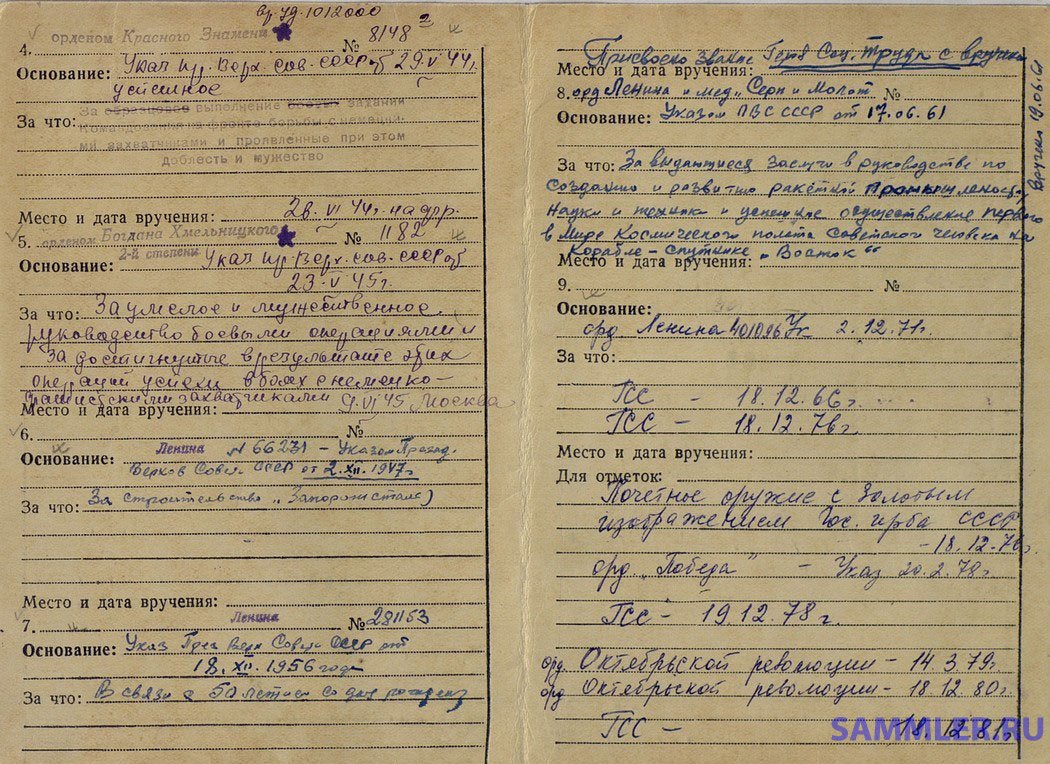 вр. уд. 1012000
орденом Красного Знамени № 8148 2
4.
Основание: Указ пр. Верх. сов. СССР об 29-VI 44г.
успешное
За образцовое выполнение боевых заданий
За что: Командования на фронте борьбы с немецки-
ми захватчиками и проявленные при этом
доблесть и мужество
Место и дата вручения: 28. VI 44г.
5. орденом Богдана Хмельницкого № 1182
2-й степени
Основание: Указ пр. Верх. сов. СССР об
23-VI 45г.
За что: За умелое и мужественное
руководство боевыми операциями и
за достигнутые в результате этих
операций успехи в боях с немецко-
фашистскими захватчиками
Место и дата вручения: 9-VI 45 Москва
6. №
Ленина № 66231 - Указом Презид.
Основание: Верхов Совета СССР от 2.XII.1947г
За что: За строительство "Запорожсталь)
Место и дата вручения:
7. Ленина № 281153
Основание: Указ През Верх Совета СССР от
18. XII. 1956 года
За что: В связи с 50 летием со дня рожден
Присвоено звание Героя Соц. Труда с вручен
Место и дата вручения:
8. орд Ленина и мед "Серп и Молот №
Основание: Указом ПВС СССР от 17.06.61
За что: За выдающиеся заслуги в руководстве по
созданию и развитию ракетной промышленност,
науки и техники и успешное осуществление первого
в мире космического полета советского человека на
корабле-спутнике "Восток"
Место и дата вручения:
Вручена 19.06.61
9. №
Основание:
орд. Ленина 401096 Ук 2.12.71г.
За что:
ГСС - 18.12.66г.
ГСС - 18.12.76г
Место и дата вручения:
Для отметок:
Почетное оружие с золотым
изображением Гос. герба СССР
- 18.12.76г.
орд. "Победа" - Указ 20.2.78г
ГСС - 19.12.78г.
орд. Октябрьской революции - 14.3.79г.
орд Октябрьской революции - 18.12.80г.
ГСС - 18.12.81г
SAMMLER.RU